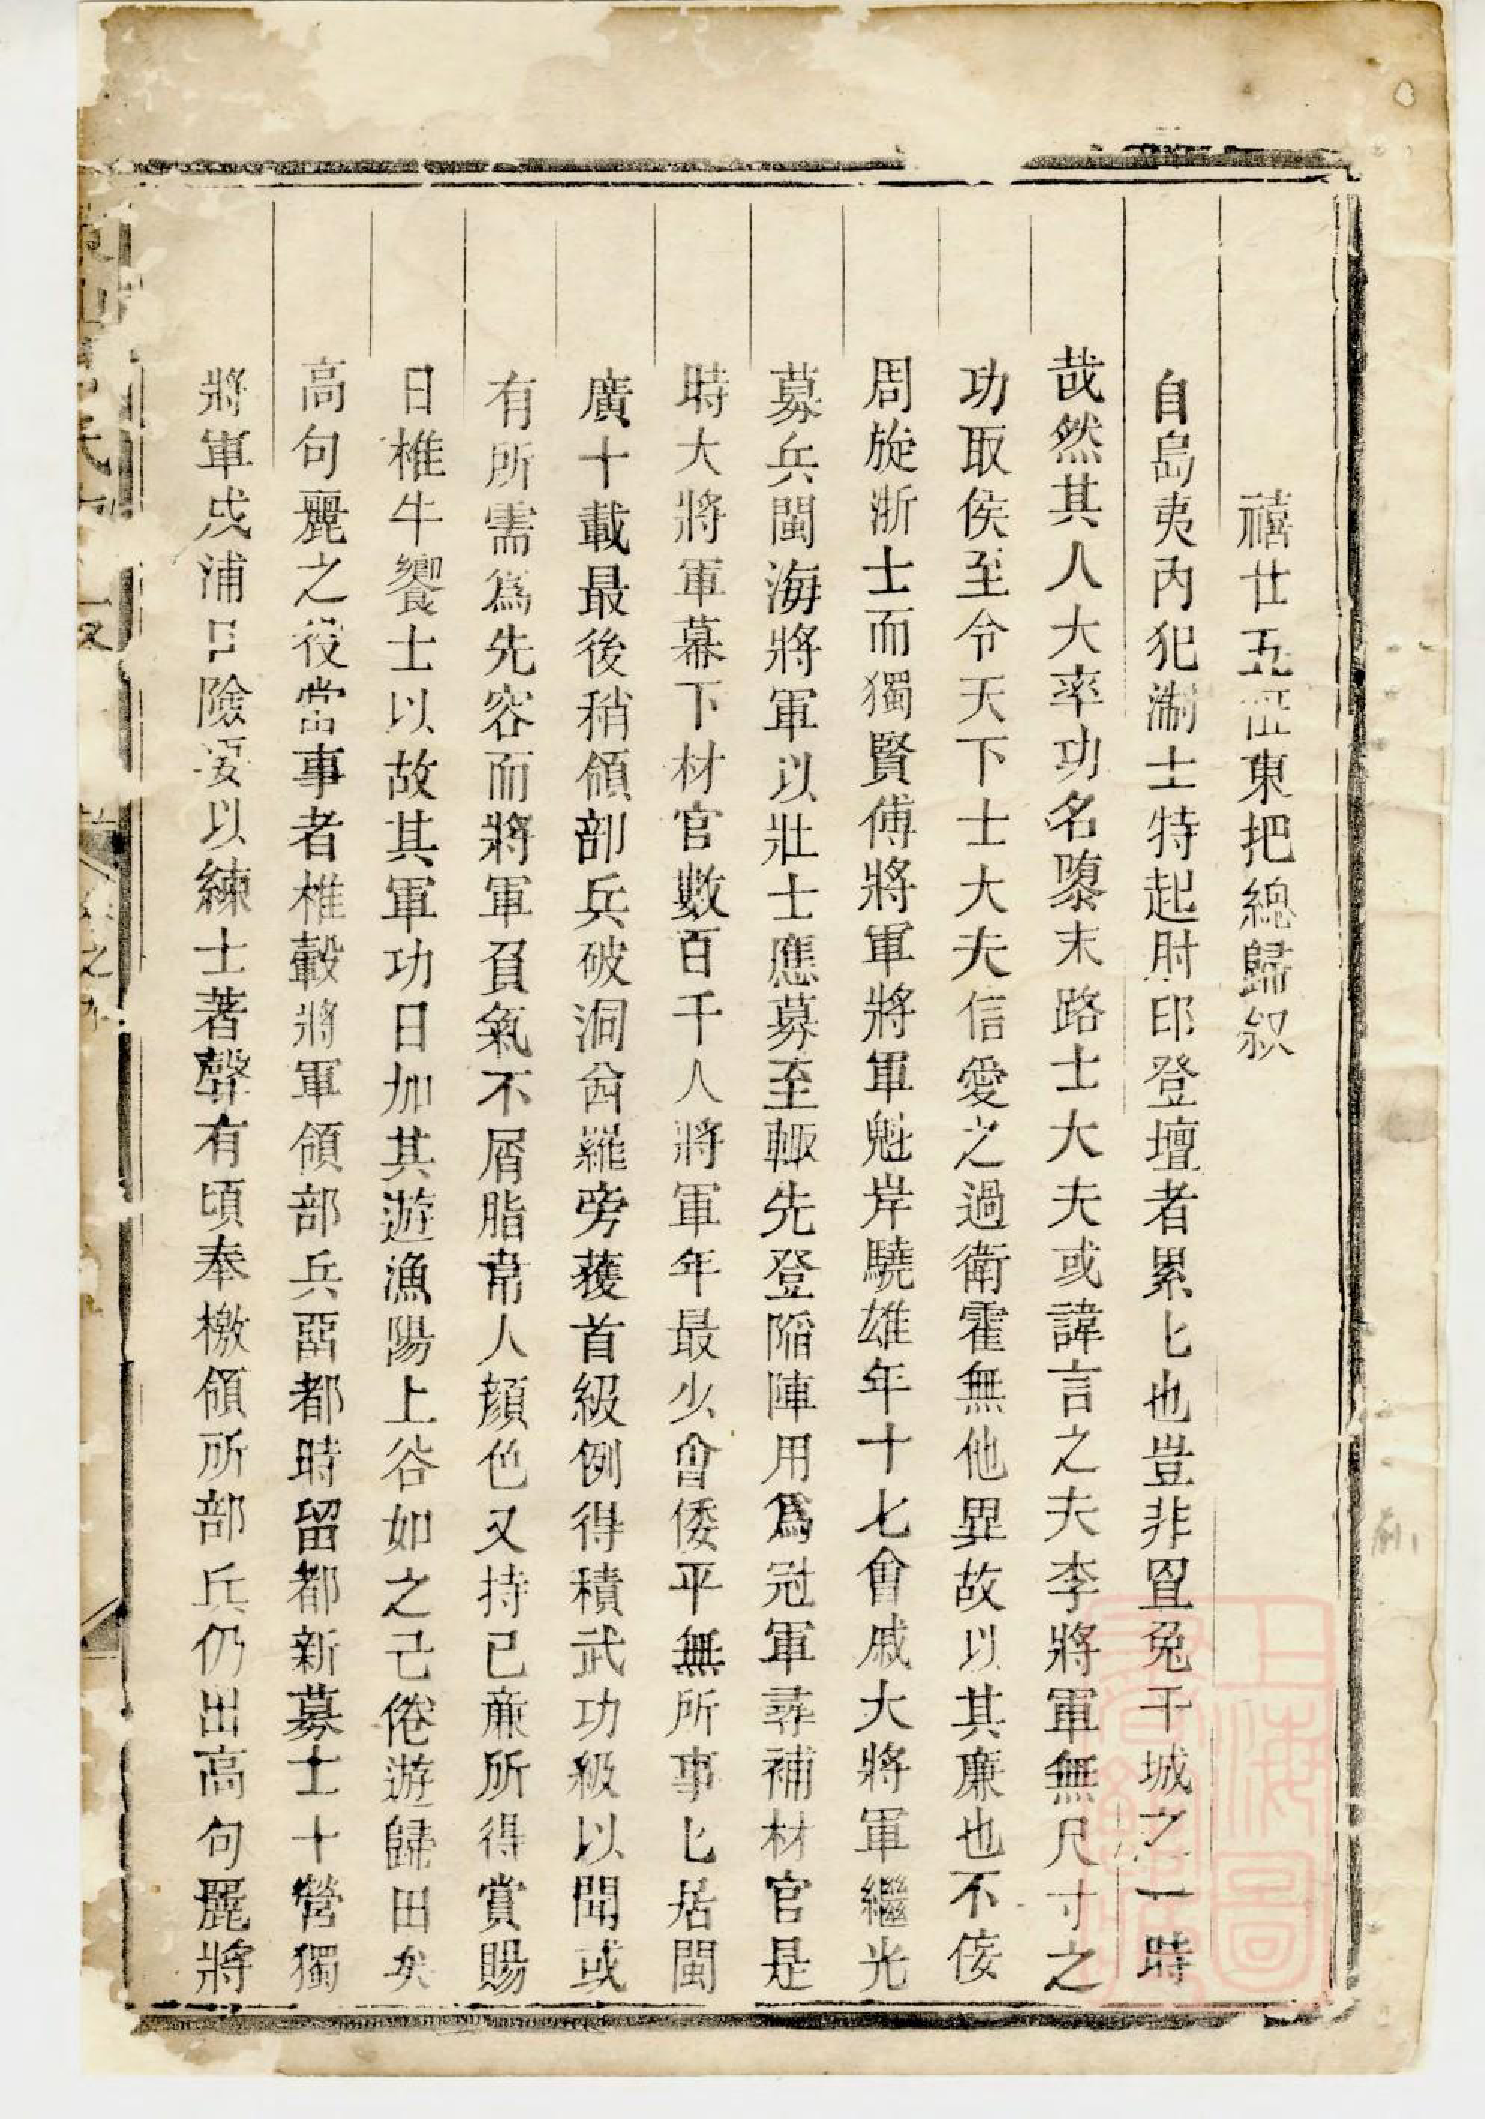 禧廿五征東把總歸叙
自島夷內犯淛士特起肘印登壇者累匕也豈非罝兔干城之一時
哉然其人大率功名隳末路士大夫或諱言之夫李將軍無尺寸之
功取侯至令天下士大夫信愛之過衛霍無他異故以其廉也不佞
周旋浙士而獨賢傅將軍將軍魁岸驍雄年十七會戚大將軍繼光
募兵閩海將軍以壯士應募至輙先登陷陣用爲冠軍尋補材官是
時大將軍幕下材官數百千人將軍年最少會倭平無所事匕居閩
廣十載最後稍領部兵破洞酋羅旁獲首級例得積武功級以聞或
有所需爲先容而將軍負氣不屑脂韋人顔色又持已廉所得賞賜
日椎牛饗士以故其軍功日加其遊漁陽上谷如之己倦游歸田矣
高句麗之役當事者椎轂將軍領部兵留都時留都新募士十營獨
將軍戍浦口險要以練士著聲有頃奉檄領所部兵仍出高句麗將
之九
上海圖